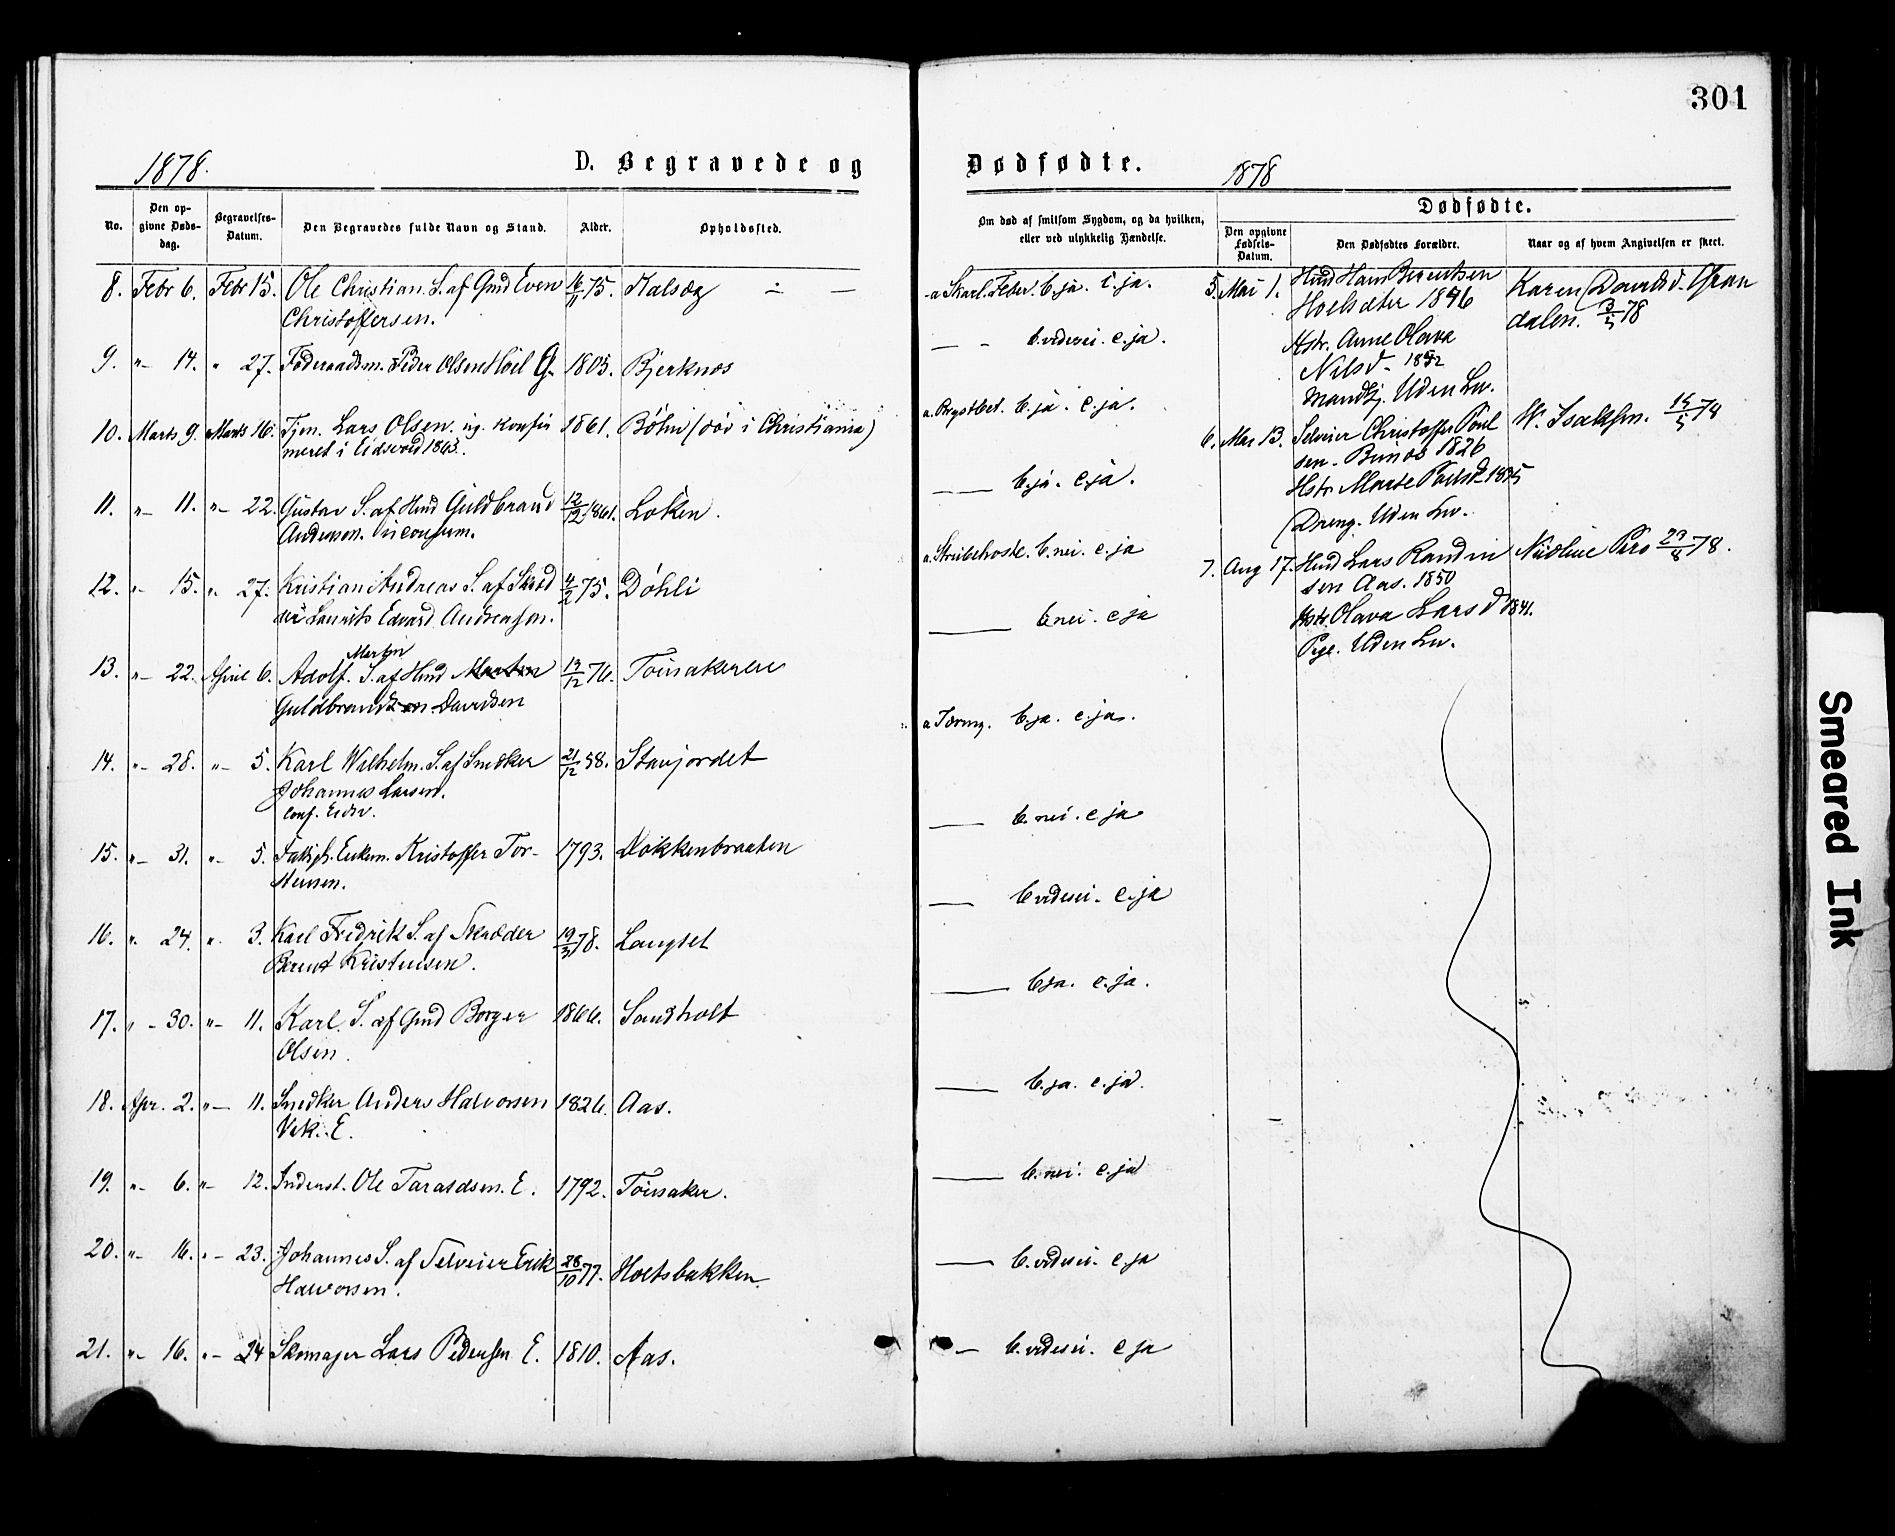 301
1878.
D. Begravede og
No.
Den op-
givne Døds-
dag.
Begravelses-
Datum.
Den Begravedes fulde Navn og Stand.
Alder.
Opholdssted.
8. Febr 6. Febr 15. Ole Christian. S. af Gmd Even 75. Kalsæg
Christoffersen.
9. " 14. " 27. Føderaadsm. Peder Olsen Høil G. 1805. Bjerknes
10. Marts 9. Marts 16. Tjen. Lars Olsen. 1861. Böhn (död i Christiania)
meret i Eidsvold 1863.
11. "- 11. "- 22. Gustav S. af Hmd Guldbrand 12/12 1861. Löken.
Andersen. inconfirm.
12. "- 15. " 27. Kristian Andreas S. af Skræd 4/2 75. Döhli
der Laurits Edvard Andreasson.
Martin
13. "- 22. April 6. Adolf. S. af Hmd Morten 19/12 76. Toinsakerere
Guldbrandsen Davidsen
14. "- 28. "- 5. Karl Wilhelm. S. af Snedker 21/12 58. Stavjordet
Johannes Larsen.
conf. Eidsv.
15. "- 31. "- 5. Fattigh. Enkem. Kristoffer Tor- 1793. Dokkenbraaten
stensen.
16. " 24. " 3. Karl Fredrik S. af Skræder 19/3 78. Langset
Berent Kristensen.
17. " - 30. "- 11. Karl. S. af Gmd Borger 1866. Sandholt
Olsen.
18. Apr. 2. "- 11. Snedker Anders Halvorsen 1826. Aas.
Vek. E.
19. "- 6. "- 12. Inderst. Ole Taraldsen. E. 1792. Toinsaker.
20. "- 16. "- 23. Johannes S. af Selveier Erik 28/10 77. Holtsbakken.
Halvorsen.
21. "- 16. "- 24 Skomager Lars Pedersen E. 1810. Aas.
Dødfødte.
1878
Om død af smitsom Sygdom, og da hvilken,
eller ved ulykkelig Hændelse.
Dødfødte.
Den opgivne
Fødsels-
Datum.
Den Dødfødtes Forældre.
Naar og af hvem Angivelsen er skeet.
a Skarl. Feber. b. ja. c. ja.
b. vides ei. c. ja.
a. Brystbet. b. ja. c. ja.
b. ja. c. ja.
a. Strubehoste. b. nei. c. ja
b. nei. c ja
a Tæring. b. ja. c. ja.
b. nei. c ja
b vides ei. c. ja
b ja. c. ja.
b. ja. c. ja.
b. nei. c. ja
b. vides ei. c. ja
b. vides ei. c ja
5. Mai 1. Hmd Hans Berentsen
Hoelsæter 1846
Hstr. Anne Olava
Nilsd. 1852
Mandkj. Uden Lev.
Karen Davidsd.
dalen. 3/5 78
6. Mai 13. Selveier Christoffer Poul
sen. 1826
Hstr Marte Poulsd. 1835
Dreng. Uden Lev.
15/5 78
7. Aug 17. Hmd Lars Randin
sen Aas. 1850
Hstr. Olava Larsd 1841.
Pige. Uden Lev.
8 78.
Smeared Ink